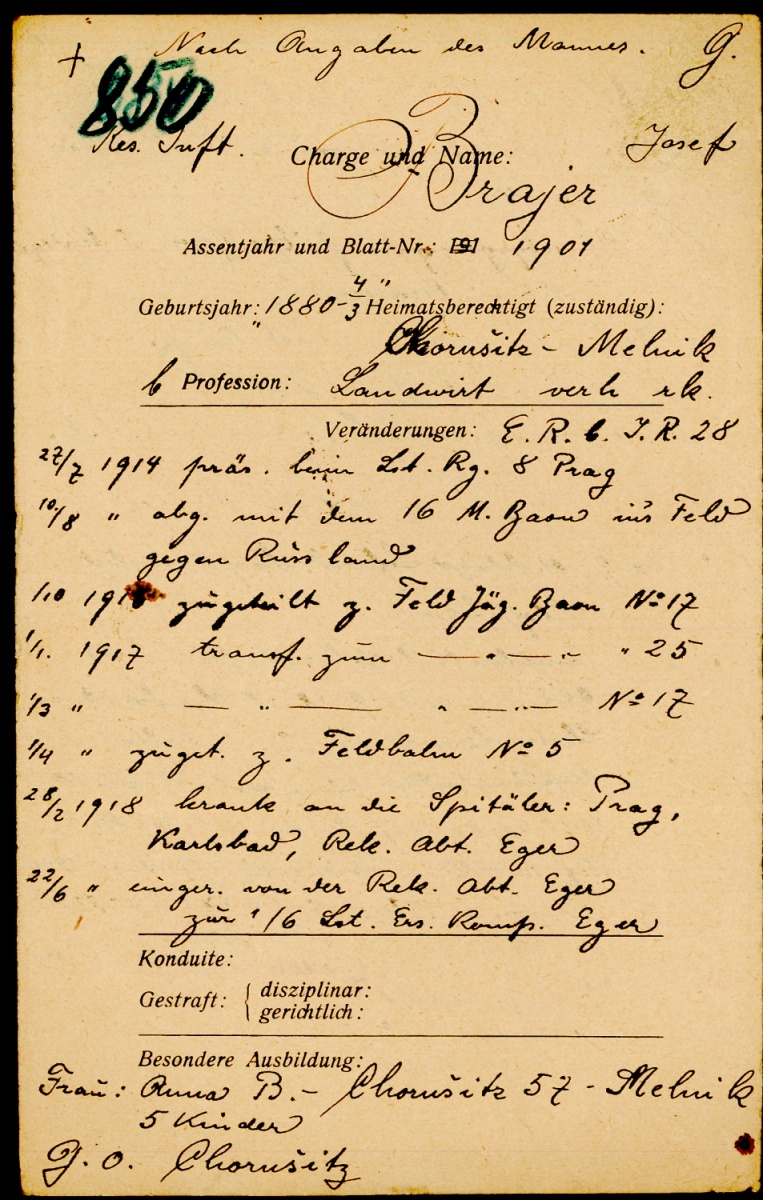 + Nach Angaben des Mannes. G.
850
Res. Inft. Charge und Name: Josef
Brajer
Assentjahr und Blatt-Nr.: 1901
4
Geburtsjahr: 1880-3 Heimatsberechtigt (zuständig):
"
Chorušitz - Melnik
b Profession: Landwirt verh rk.
Veränderungen: E. R. b. I. R. 28
27/7 1914 präs. beim Lst. Rg. 8 Prag
10/8 " abg. mit dem 16 M. Baon ins Feld
gegen Russland
1/10 191 zugeteilt z. Feld Jäg. Baon No 17
1/1. 1917 transf. zum — " — " " 25
1/3 " — " — " — " — No 17
1/4 " zuget. z. Feldbahn No 5
28/2 1918 krank an die Spitäler: Prag,
Karlsbad, Rek. Abt. Eger
22/6 " einger. von der Rek. Abt. Eger
zur 1/6 Lst. Ers. Komp. Eger
Konduite:
Gestraft: { disziplinar:
gerichtlich:
Besondere Ausbildung:
Frau: Anna B. - Chorušitz 57 - Melnik
5 Kinder
G. O. Chorušitz